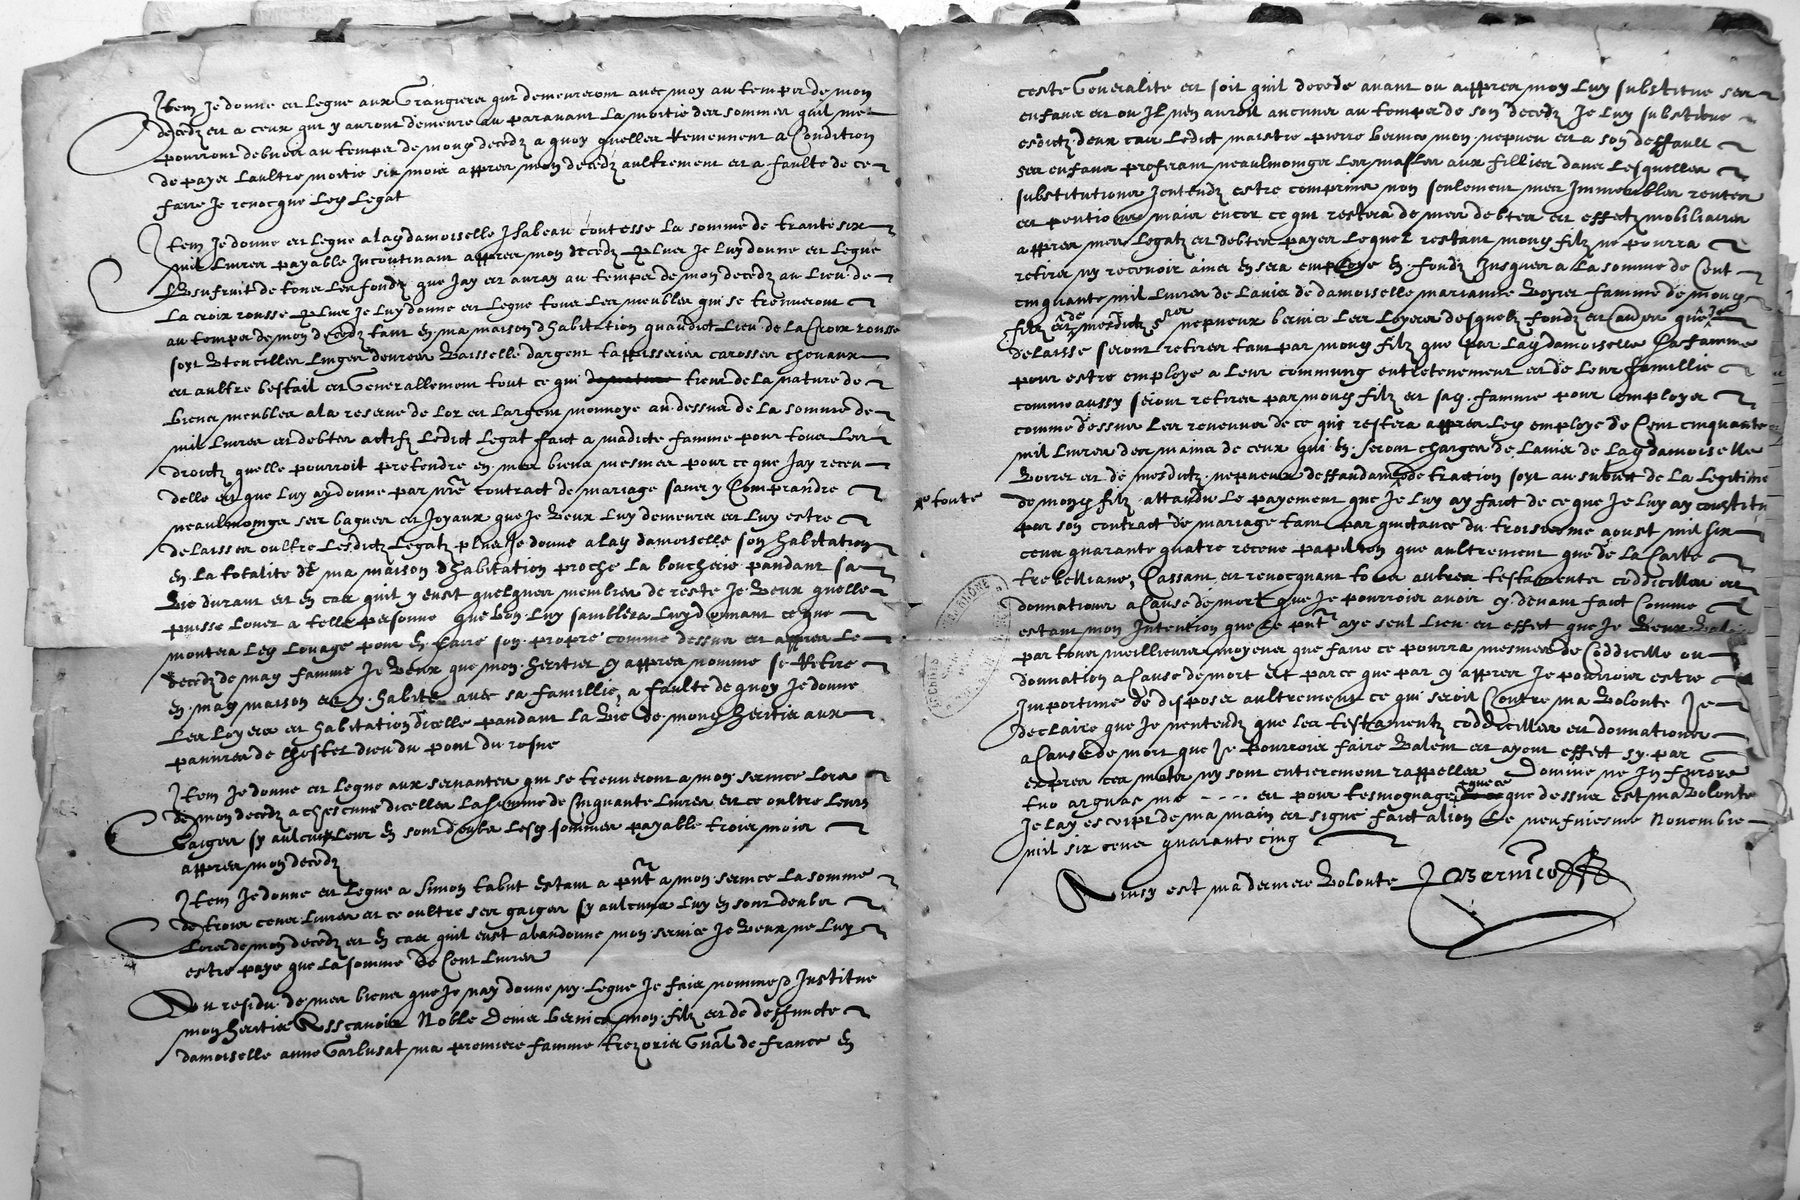 Item Je donne et legue aux Grangiers qui demeureront avec moy au temps de mon
decedz et a ceux qui y auront demeure au paravant la moitie des sommes quil me
pourront debvoir au temps de mong decedz a quoy quelles Reviennent a Condition
de payer laultre moitie six mois appres mon decedz aultrement et a faulte de ce
faire Je revocque lesg legat
Item Je donne et legue a lag damoiselle Isabeau contesse la somme de trante six
mil livres payable Incontinant appres mon decedz Plus Je luy donne et legue
Lusufruit de tous les fondz que Jay et auray au temps de mon decedz au lieu de
La croix rousse Plus Je luy donne et legue tous les meubles qui se treuveront
au temps de mon decedz tant en ma maison dhabitation quaudict lieu de la Croix rousse
soyt Utencilles linges denrees Vaisselle dargent tappisseries carosses chevaux
et aultre bestail et Generallement tout ce qui tient de la nature de
biens meubles a la reserve de lor et largent monnoye au dessus de la somme de
mil livres et debtes actifz Ledict legat faict a madicte famme pour tous les
droictz quelle pourroit pretendre en mes biens mesmes pour ce que Jay receu
delle et que luy ay donne par nre contract de mariage sans y Comprandre
neaulmoings ses bagues et Joyaux que Je Veux luy demeurer et luy estre
delaisses oultre lesdictz legatz plus Je donne a lag damoiselle son habitation
en la totalite de ma maison dhabitation proche la boucherie pandant sa
Vie durant et en cas quil y eust quelques membres de reste Je Veux quelle
puisse louer a telle personne que bon luy samblera luy donnant ce que
montera lesg louage pour en faire son propre comme dessus et appres le
decedz de mag famme Je Veux que mon heritier cy appres nomme se Retire
en mag maison et y habite avec sa famillie a faulte de quoy Je donne
Les loyers et habitation dicelle pandant la Vie de mong heritier aux
pauvres de lhostel dieu du pont du rosne
Item Je donne et legue aux servantes qui se treuveront a mon service lors
de mon decedz a chescune dicelles la somme de Cinquante livres et ce oultre leurs
Gaiges sy aulcungs leur en sont deubz lesg sommes payable trois mois
appres mon decedz
Item Je donne et legue a Simon tabut estant a pnt a mon service la somme
de trois cens livres et ce oultre ses gaiges sy aulcungs luy en sont deubz
Lors de mon decedz et en cas quil eust abandonne mon service Je Veux ne luy
estre paye que la somme de Cent livres
Du residu de mes biens que Je nay donne ny legue Je fais nomme et Institue
mon heritier Asscavoir Noble Denis bernico mon filz et de deffuncte
damoiselle anne Garbusat ma premiere famme trezorier Gnal de france en
ceste Generalite et soit quil decede avant ou appres moy luy substitue ses
enfans et ou Il nen auroit aucuns au temps de son decedz Je luy substitue
esdictz deux cas ledict maistre pierre bernico mon nepveu et a son deffault
ses enfans preferant neaulmoings les masles aux fillies dans lesquelles
substitutions Jentendz estre comprins non seulement mes Immeubles rentes
et pentions mais encor ce qui restera de mes debtes et effectz mobiliaires
appres mes legatz et debtes payes lequel restant mong filz ne pourra
retirer ny recevoir ains en sera employe en fondz Jusques a la somme de Cent
cinquante mil livres de lavis de damoiselle marianne Boyer famme de mong
filz et de mesdictz srs nepveux bernico les loyers desquelz fondz et que Je
delaisse seront retires tant par mong filz que par lag damoiselle sa famme
pour estre employe a leur commung entretenement et de leur famillie
comme aussy seront retires par mong filz et sag famme pour employer
comme dessus les revenus de ce qui restera appres lesg employe de Cent cinquante
mil livres des mains de ceux qui en seront charges de lavis de lag damoiselle
Boyer et de mesdictz nepveux deffandant toute detraction soyt au subiect de la legitime
+ toute
de mong filz attandu le payement que Je luy ay faict de ce que Je luy ay constitu
par son contract de mariage tant par quictance du troisiesme aoust mil six
cens quarante quatre receue papilton que aultrement que de la Carte
trebelliane, Cassant et revocquant tous autres testaments coddicilles et
donnations a Cause de mort que Je pourrois avoir cy devant faict Comme
estant mon Intention que le pnt aye seul lieu et effect que Je Veux Valoir
par tous meillieurs moyens que faire ce pourra mesmes de Coddicille ou
donnation a Cause de mort et parce que par cy appres Je pourrois estre
Importune de disposer aultrement ce qui seroit Contre ma Volonte Je
declaire que Je nentendz que les testamentz coddicilles et donnations
a Cause de mort que Je pourrois faire Valent et ayent effect sy par
expres ces motz ny sont entierement rappelles Domine ne In furore
tuo arguas me - - - - et pour tesmoignage que ce que dessus est ma Volonte
Je lay escript de ma main et signe faict a lion Ce neufviesme Novembre
mil six cens quarante cinq
Ainsy est ma derniere Volonte J Bernico